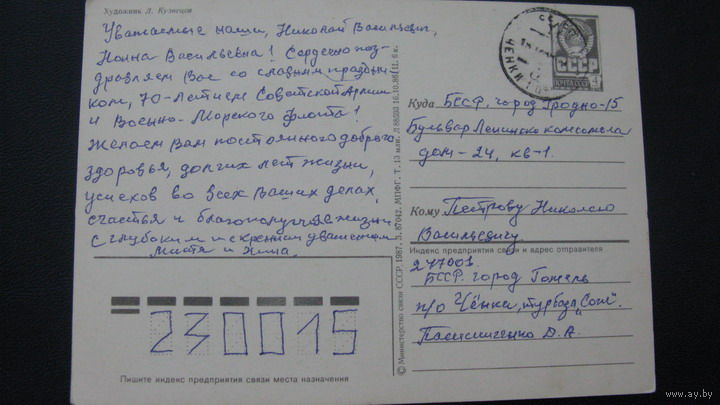 Художник Л. Кузнецов
Уважаемые наши, Николай Васильевич,
Нонна Васильевна! Сердечно поз-
дравляем Вас со славным праздни-
ком, 70-летием Советской Армии
и Военно-Морского Флота!
Желаем Вам постоянного доброго
здоровья, долгих лет жизни,
успехов во всех Ваших делах,
счастья и благополучия в жизни
с глубоким и искренним уважением
Митя и
230015
Пишите индекс предприятия связи места назначения
© Министерство связи СССР, 1987. З. 87042. МПФГ. Т. 13 млн. 16.10.86 11. 6 к.
ЧЕНКИ
СССР
4
Куда БССР, город Гродно-15
Бульвар Ленинского комсомола
дом-24, кв-1.
Кому Петрову Николаю
Васильевичу.
Индекс предприятия связи и адрес отправителя
247001.
БССР город Гомель
п/о Чёнки, турбаза "Сож".
Д. А.
www.ay.by